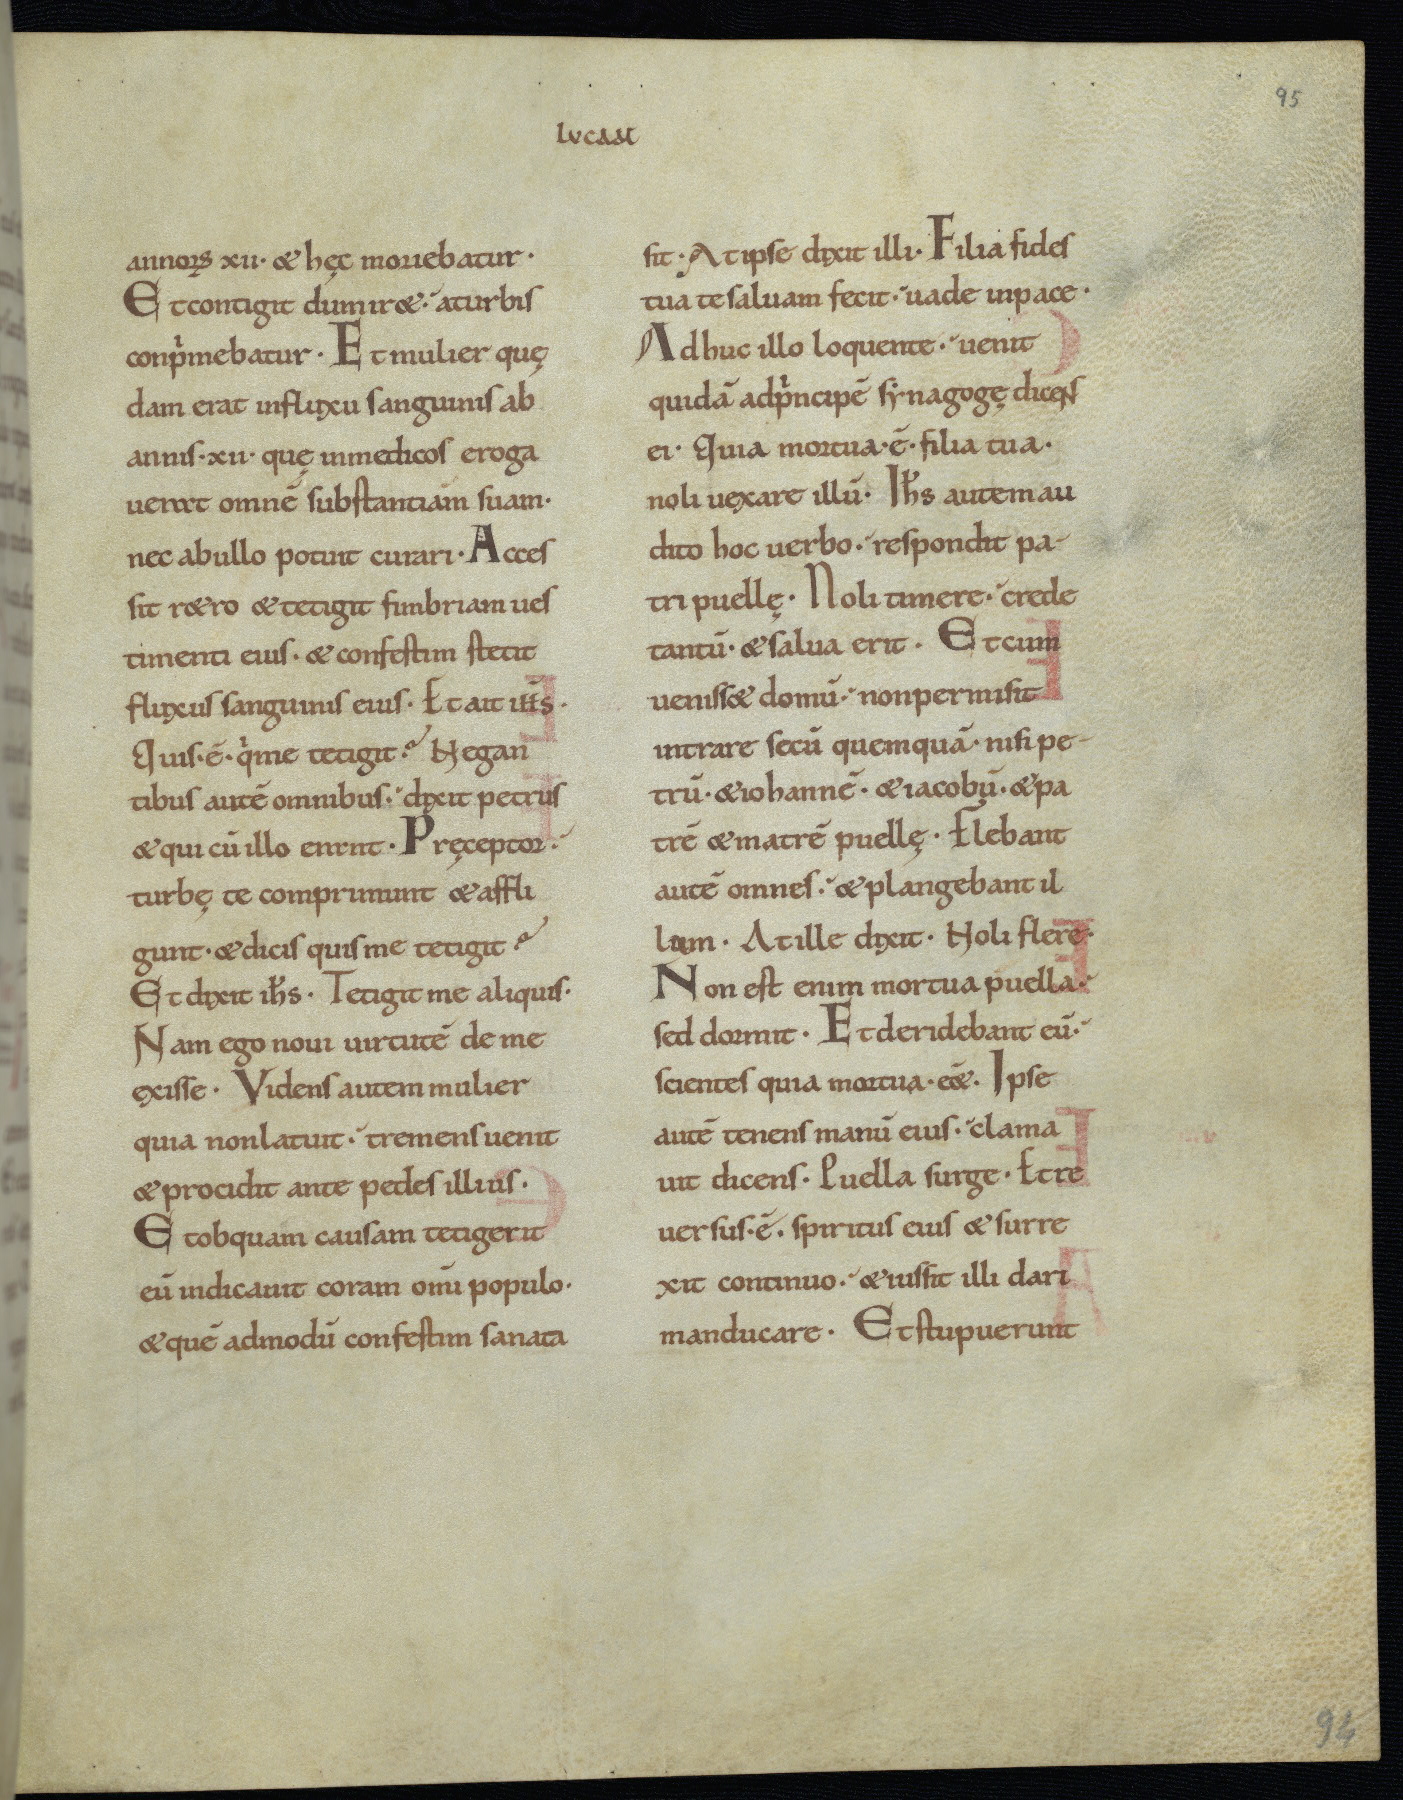 95
lvcam
annorꝝ xii· & hęc moriebatur·
Et contigit dum ir&· a turbis
conp̍mebatur· Et mulier quę
dam erat in fluxu sanguinis ab
annis·xii· quę in medicos eroga
uerat omnē substantiam suam·
nec ab ullo potuit curari· Acces
sit r&ro & tetigit fimbriam ues
timenti eius· & confestim stetit
fluxus sanguinis eius· Et ait ih̄s·
Quis·ē· q̍ me tetigit? Negan
tibus autē omnibus· dixit petrus
& qui cū illo erant· Pręceptor·
turbę te comprimunt & affli
gunt· & dicis quis me tetigit?
Et dixit ih̄s· Tetigit me aliquis·
Nam ego noui uirtutē de me
exisse· Videns autem mulier
quia non latuit· tremens uenit
& procidit ante pedes illius·
Et ob quam causam tetigerit
eū indicauit coram om̄i populo·
& quē admodū confestim sanata
sit· At ipse dixit illi· Filia fides
tua te saluam fecit· uade in pace·
Ad huc illo loquente· uenit
quidā ad p̍ncipē synagogę dicens
ei· Quia mortua·ē· filia tua·
noli uexare illū· Ih̄s autem au
dito hoc uerbo· respondit pa-
tri puellę· Noli timere· crede
tantū· & salua erit· Et cum
ueniss& domū· non permisit
intrare secū quemquā· nisi pe-
trū· & iohannē· & iacobū· & pa
trē & matrē puellę· Flebant
autē omnes· & plangebant il
lam· At ille dixit· Noli flere·
Non est enim mortua puella·
sed dormit· Et deridebant eū·
scientes quia mortua·eē&· Ipse
autē tenens manū eius· clama
uit dicens· Puella surge· Et re
uersus·ē· spiritus eius & surre
xit continuo· & iussit illi dari
manducare· Et stupuerunt
94